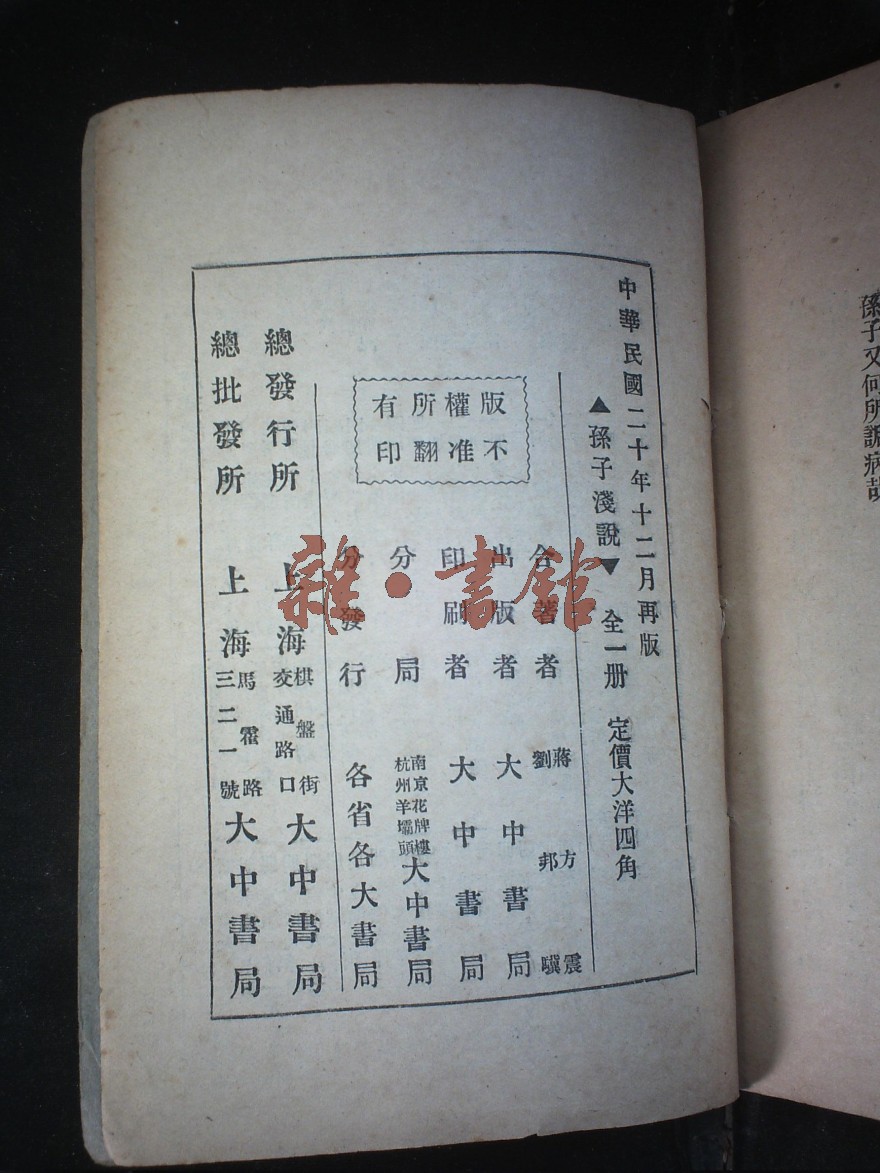 孫子又何所詬病哉
中華民國二十年十二月再版
▲孫子淺說▼ 全一册 定價大洋四角
合著者 蔣方震 劉邦驥
出版者 大中書局
印刷者 大中書局
分局 南京花牌樓 杭州羊壩頭 大中書局
分發行 各省各大書局
版權所有
不准翻印
總發行所 上海 棋盤街 交通路口 大中書局
總批發所 上海 馬霍路 三二一號 大中書局
雜·書館